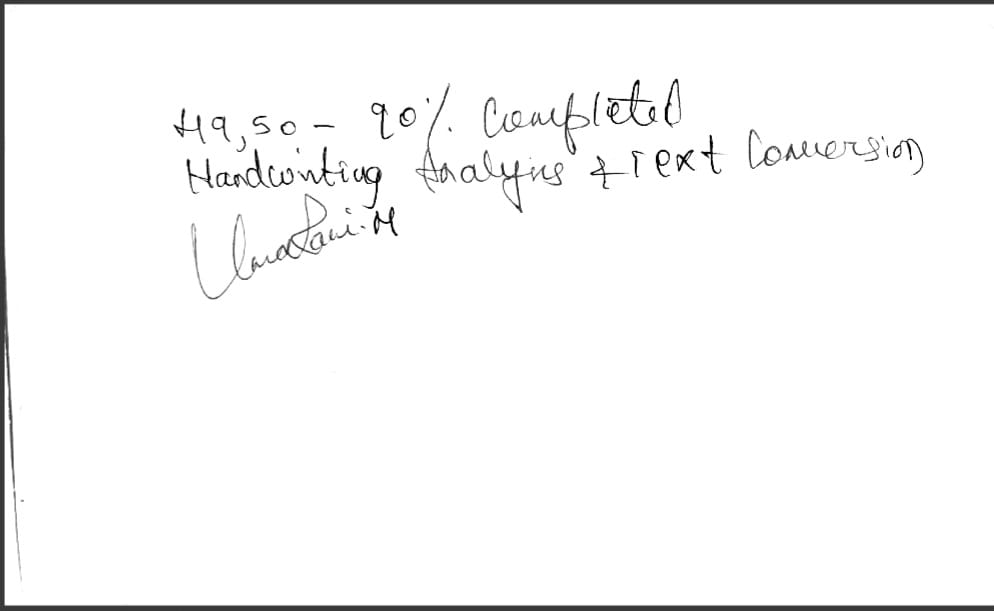 49,50 - 90% Completed
Handwriting Analysis & Text Conversion
UmaRani.M